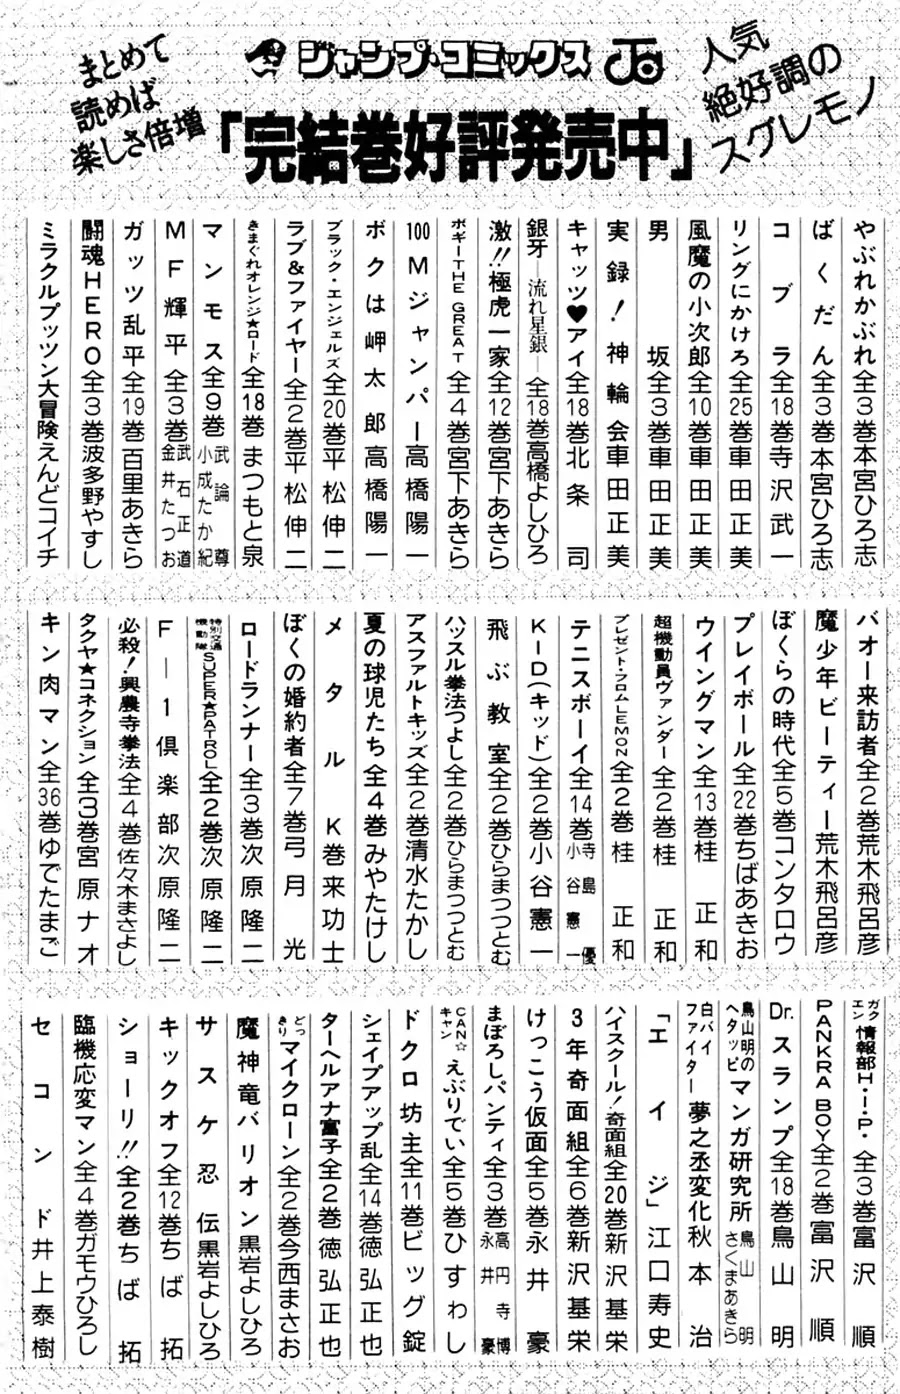 まとめて
読めば
楽しさ倍増
ジャンプ・コミックス
「完結巻好評発売中」
人気
絶好調の
スグレモノ
やぶれかぶれ全3巻本宮ひろ志
ばくだん全3巻本宮ひろ志
コブラ全18巻寺沢武一
リングにかけろ全25巻車田正美
風魔の小次郎全10巻車田正美
男坂全3巻車田正美
実録!神輪会車田正美
キャッツ♥アイ全18巻北条司
銀牙―流れ星銀―全18巻高橋よしひろ
激!!極虎一家全12巻宮下あきら
ボギーTHE GREAT全4巻宮下あきら
100Mジャンパー高橋陽一
ボクは岬太郎高橋陽一
ブラック・エンジェルズ全20巻平松伸二
ラブ&ファイヤー全2巻平松伸二
きまぐれオレンジ★ロード全18巻まつもと泉
マンモス全9巻武論尊小成たか紀
MF輝平全3巻武石正道金井たつお
ガッツ乱平全19巻百里あきら
闘魂HERO全3巻波多野やすし
ミラクルプッツン大冒険えんどコイチ
バオー来訪者全2巻荒木飛呂彦
魔少年ビーティー荒木飛呂彦
ぼくらの時代全5巻コンタロウ
プレイボール全22巻ちばあきお
ウイングマン全13巻桂正和
超機動員ヴァンダー全2巻桂正和
プレゼント・フロムLEMON全2巻桂正和
テニスボーイ全14巻寺島優小谷憲一
KID(キッド)全2巻小谷憲一
飛ぶ教室全2巻ひらまつつとむ
ハッスル拳法つよし全2巻ひらまつつとむ
アスファルトキッズ全2巻清水たかし
夏の球児たち全4巻みやたけし
メタルK巻来功士
ぼくの婚約者全7巻弓月光
ロードランナー全3巻次原隆二
特別交通機動隊SUPER★PATROL全2巻次原隆二
F―1倶楽部次原隆二
必殺!興農寺拳法全4巻佐々木まさよし
タクヤ★コネクション全3巻宮原ナオ
キン肉マン全36巻ゆでたまご
ガクエン情報部H・I・P・全3巻富沢順
PANKRA BOY全2巻富沢順
Dr.スランプ全18巻鳥山明
鳥山明のヘタッピマンガ研究所鳥山明さくまあきら
白バイファイター夢之丞変化秋本治
「エイジ」江口寿史
ハイスクール!奇面組全20巻新沢基栄
3年奇面組全6巻新沢基栄
けっこう仮面全5巻永井豪
まぼろしパンティ全3巻高円寺博永井豪
CAN☆キャンえぶりでい全5巻ひすゎし
ドクロ坊主全11巻ビッグ錠
シェイプアップ乱全14巻徳弘正也
ターヘルアナ富子全2巻徳弘正也
どっきりマイクローン全2巻今西まさお
魔神竜バリオン黒岩よしひろ
サスケ忍伝黒岩よしひろ
キックオフ全12巻ちば拓
ショーリ!!全2巻ちば拓
臨機応変マン全4巻ガモウひろし
セコンド井上泰樹